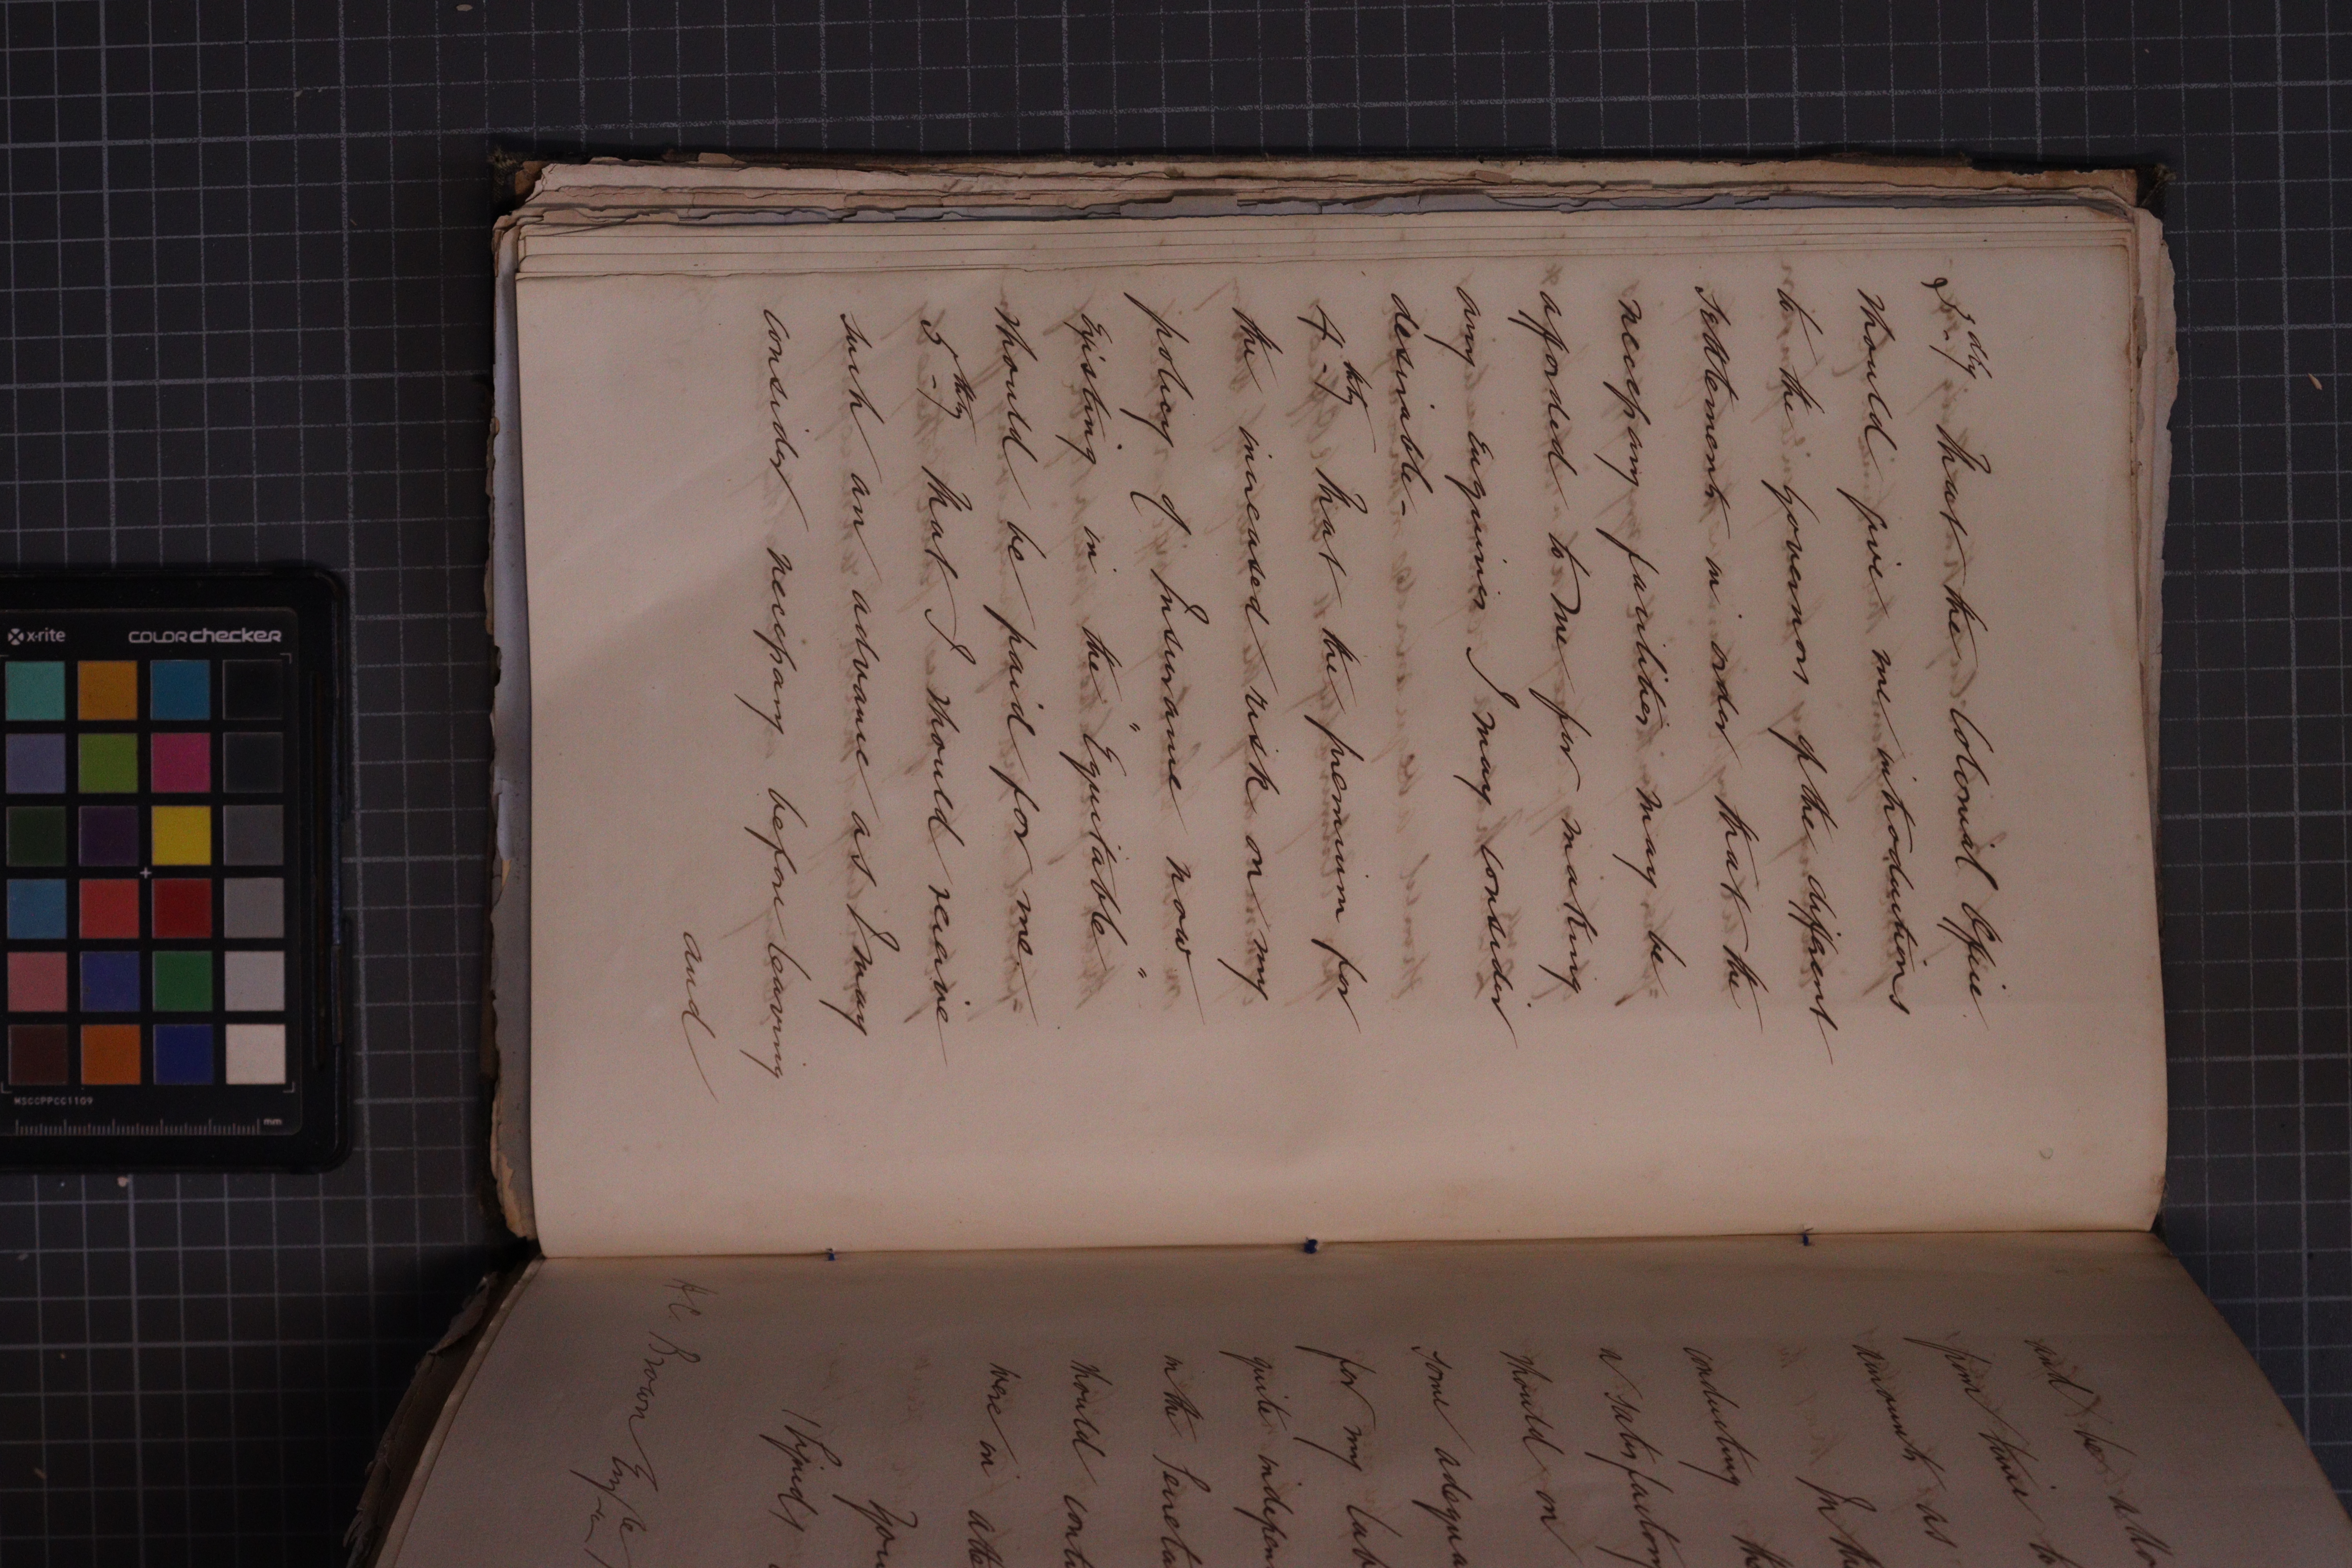 3dly That the Colonial Office
should give me introductions
to the governors of the different
settlements in order that the
necessary facilities may be
afforded to me for making
any Enquiries I may consider
desirable -
4thly That the premium for
the increased risk on my
policy of Insurance now
existing in the "Equitable"
should be paid for me -
5thly That I should receive
such an advance as I may
consider necessary before leaving
and
and be
from time
amounts as
In the
conducting the
a satisfactory
should on
some adequa
for my lab
quite indepen
in the Secreta
should conti
were in atte
Your
(Signed)
Brown Esqre
x-rite
colorchecker
MSCCPPCC1109
mm